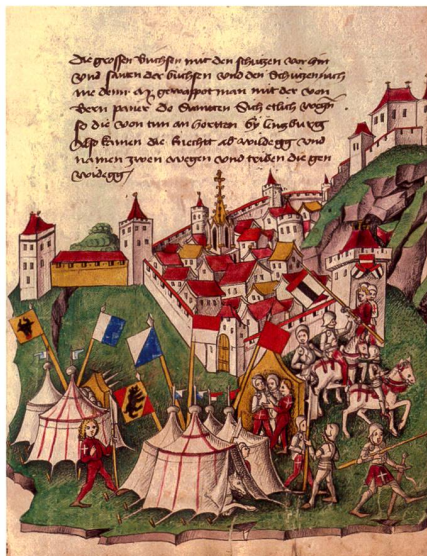 die grossen büchsen mit den schützen vor hin
vnd santen der büchsen vnd den schützen nach
me denn gewapot man mit der von
bern paner do sich etlich
so die von an by lentzburg
Also kamen die knecht ab wildegg vnd
namen zwen wegen vnd triben die gen
wildegg